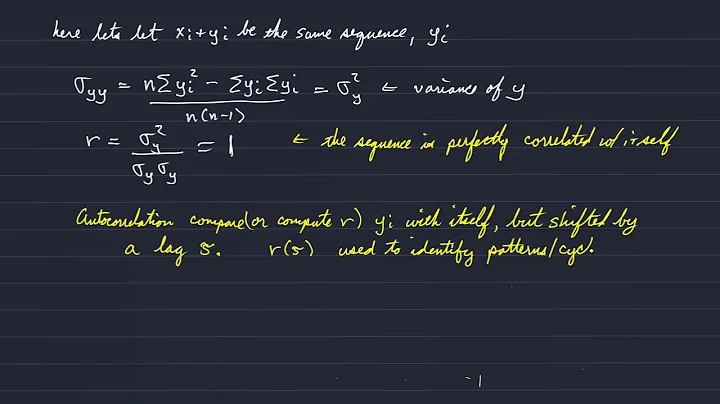 here lets let xi + yi be the same sequence, yi
σyy = n∑yi² - ∑yi∑yi / n(n-1) = σy² ← variance of y
r = σy² / σyσy = 1 ← the sequence is perfectly correlated w/ itself
Autocorrelation compare (or compute r) yi with itself, but shifted by
a lag τ. r(τ) used to identify patterns/cycl.
-1